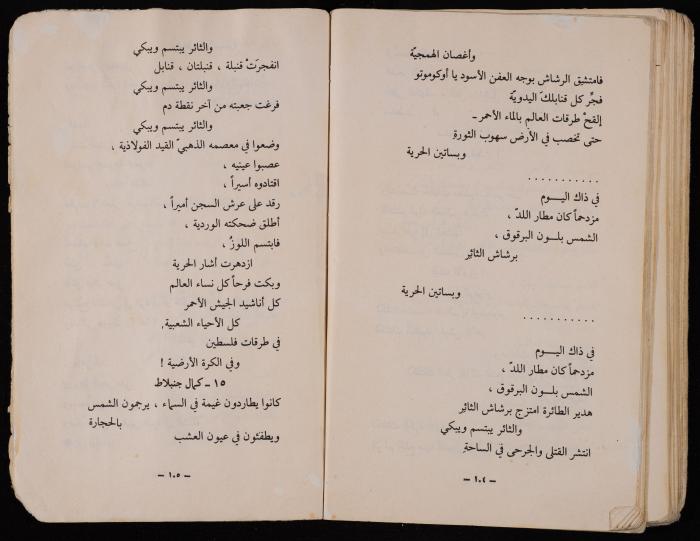 وأغصان الهمجيّة
فامتشيق الرشاش بوجه العفن الأسود يا أوكوموتو
فجّر كل قنابلك اليدويّة
إلقحْ طرقات العالم بالماء الأحمر ــ
حتى تخصب في الأرض سهوب الثورة
وبساتين الحرية
. . . . . . . . . . .
في ذاك اليـــوم
مزدحماً كان مطار اللدّ ،
الشمس بلـــون البرقوق ،
برشاش الثائر
وبساتين الحرية
. . . . . . . . . . .
في ذاك اليـــوم
مزدحماً كان مطار اللدّ ،
الشمس بلـــون البرقوق ،
هدير الطائرة امتزج برشاش الثائر
والثائر يبتسم ويبكي
انتشر القتلى والجرحى في الساحة
ــ ١٠٤ ــ
والثائر يبتسم ويبكي
انفجرَتْ قنبلة ، قنبلتان ، قنابل
والثائر يبتسم ويبكي
فرغت جعبته من آخر نقطة دم
والثائر يبتسم ويبكي
وضعوا في معصمه الذهبيّ القيد الفولاذية ،
عصبوا عينيه ،
اقتادوه أسيراً ،
رقد على عرش السجن أميراً ،
أطلق ضحكته الوردية ،
فابتسم اللوزُ ،
ازدهرت أشار الحرية
وبكت فرحاً كل نساء العالم
كل أناشيد الجيش الأحمر
كل الأحياء الشعبية.
في طرقات فلسطين
وفي الكرة الأرضية !
١٥ ــ كمال جنبلاط
كانوا يطاردون غيمة في السماء ، يرجمون الشمس
بالحجارة
ويطفئون في عيون العشب
ــ ١٠٥ ــ